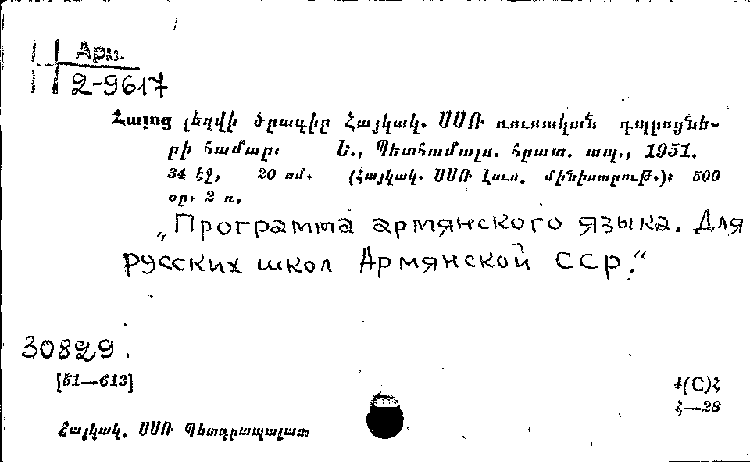 Арм.
2-9617
Հայոց լեզվի ծրագիր Հայկակ. ՍՍՌ ռուսական դպրոցնե-
րի համար։ Ե., Պետհամալս. հրատ. տպ., 1951.
34 էջ, 20 սմ. (Հայկակ. ՍՍՌ Լուս. մինիստրութ.)։ 500
օր. 2 ռ.
„Программа армянского языка. Для
русских школ Армянской ССР.“
30829.
[51—613]
4(С)Հ
Հ—28
Հայկակ. ՍՍՌ Պետգրապալատ